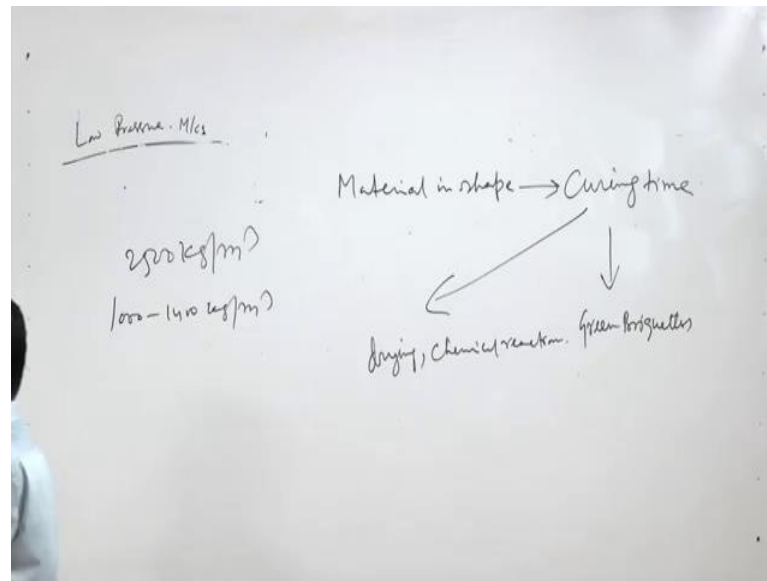 Low Pressure. M/cs
Material in shape → Curing time
2500 kg/m3
1000-1400 kg/m3
drying, Chemical reaction.
Green Briquettes